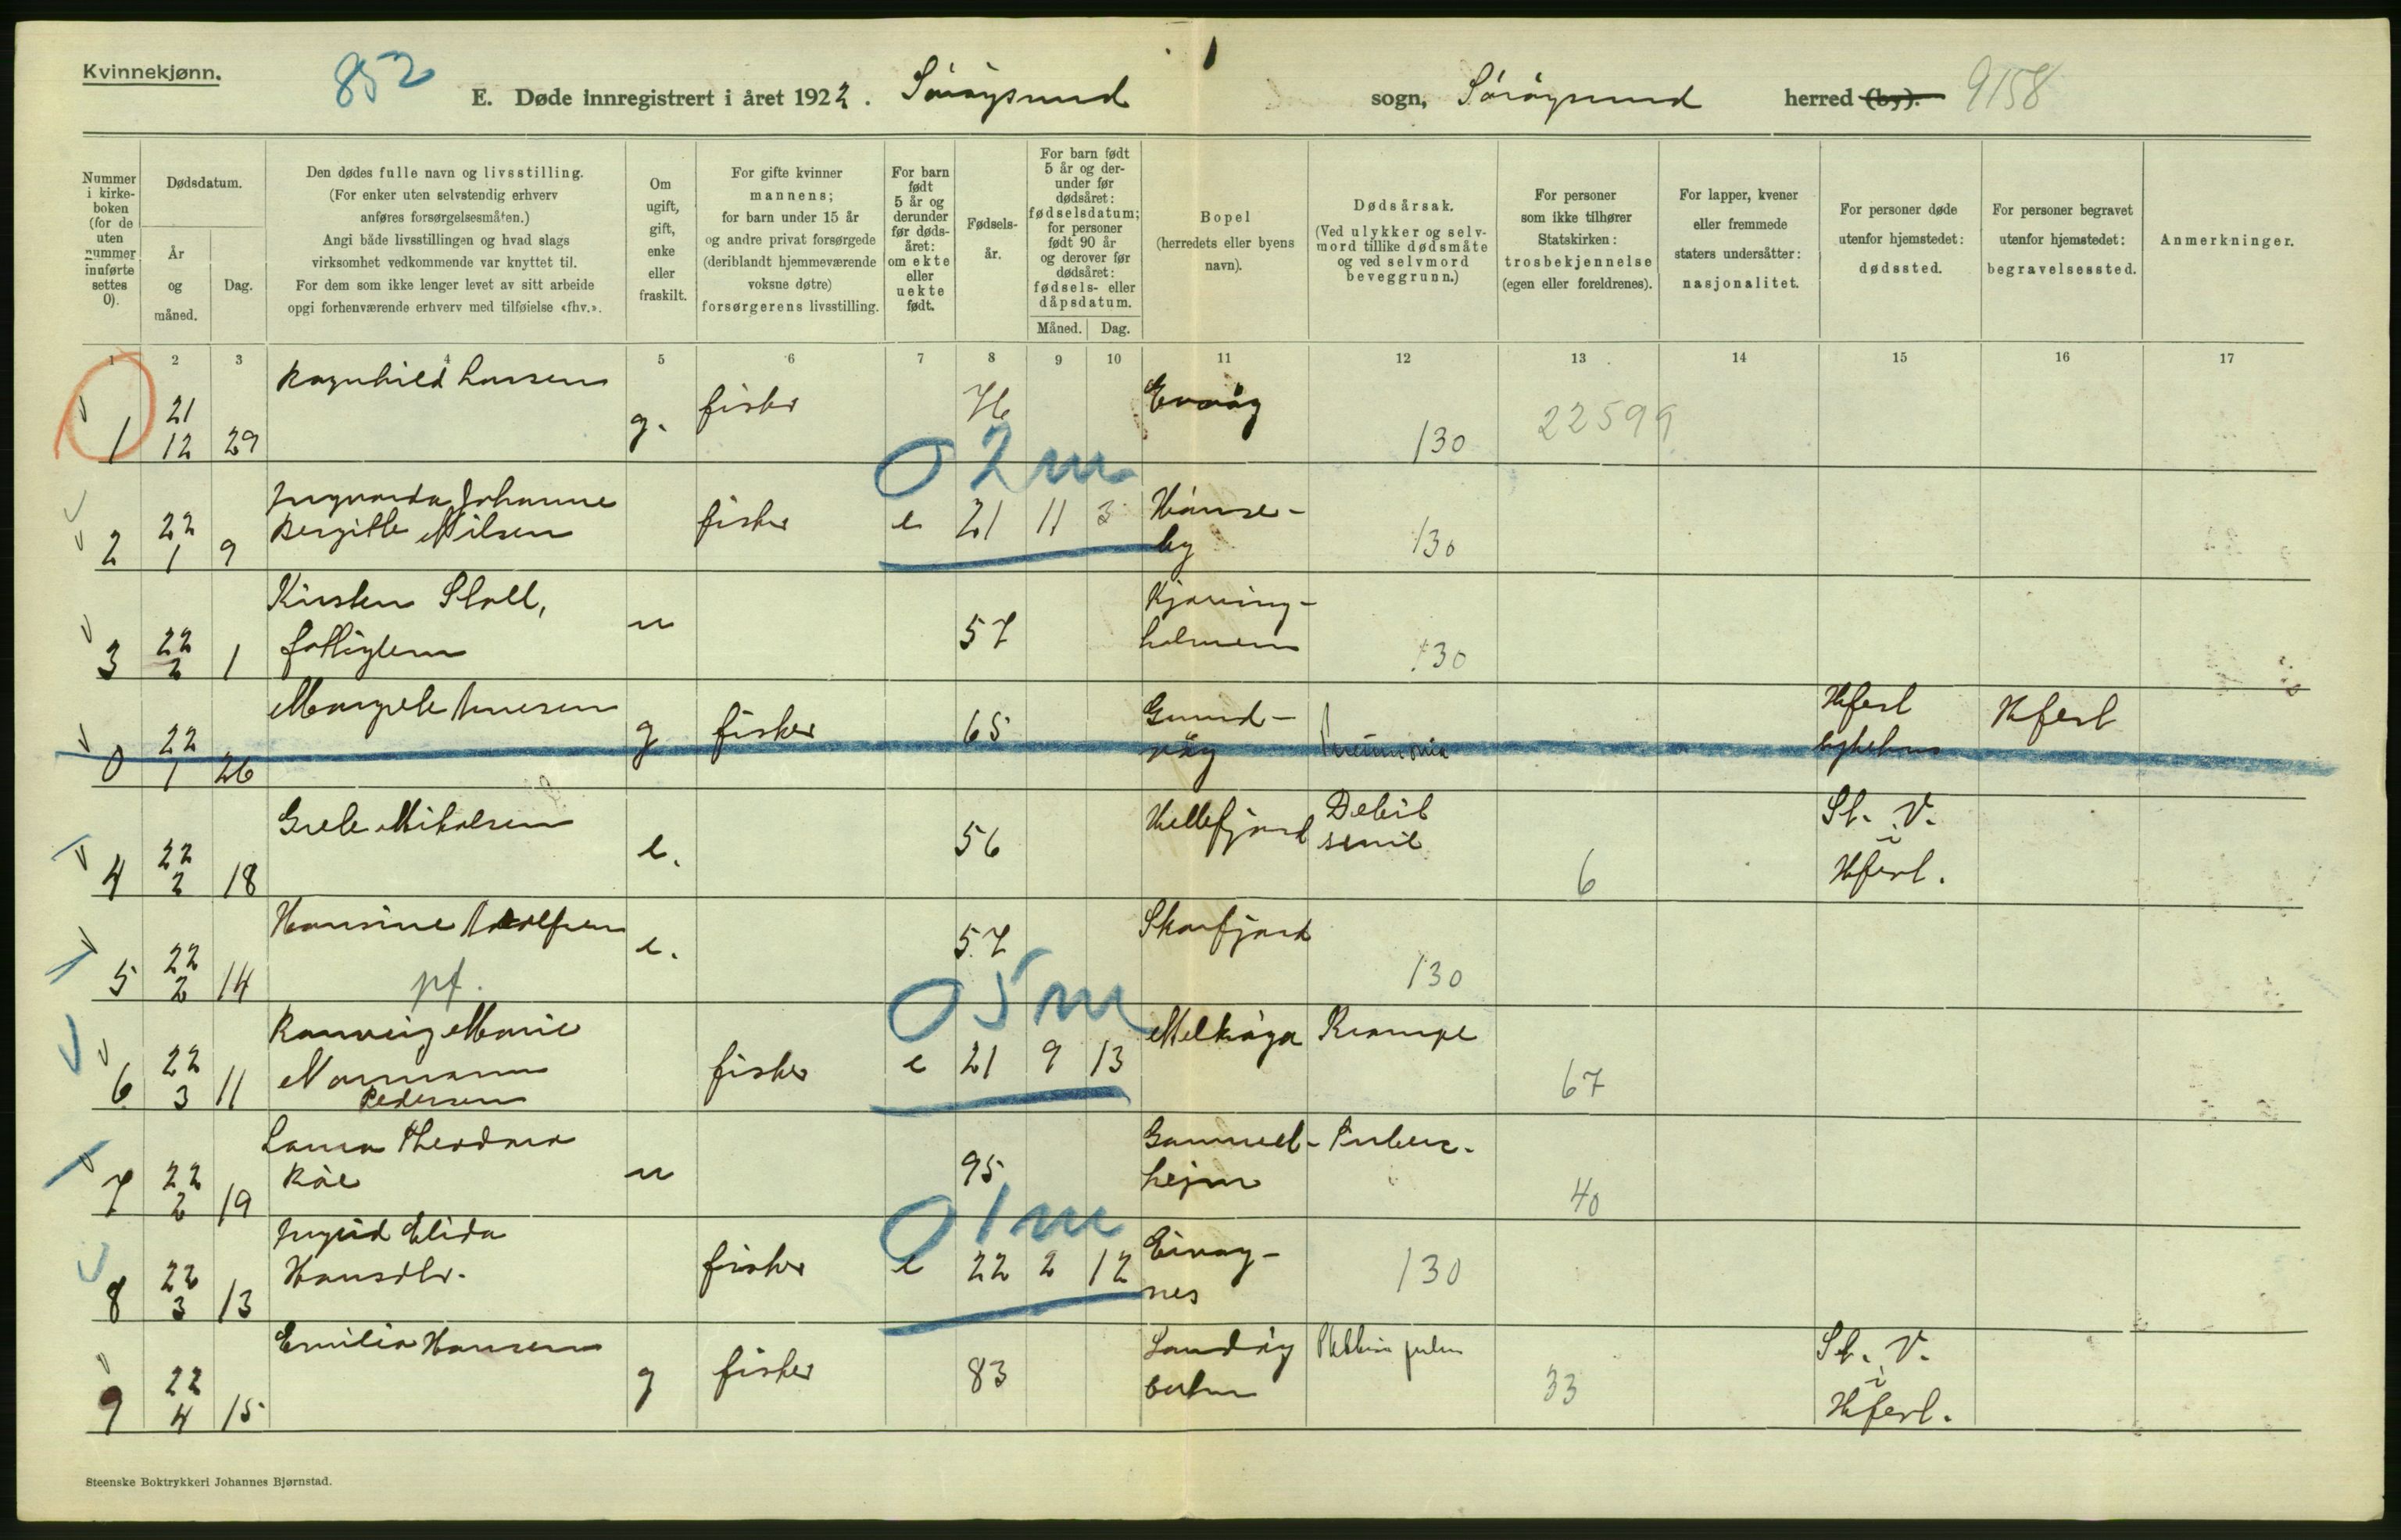 Kvinnekjønn.
852
E. Døde innregistrert i året 1922. Sørøysund sogn, Sørøysund herred (by). 9158
Nummer i kirke-boken (for de uten nummer innførte settes 0).
Dødsdatum.
År og måned.
Dag.
Den dødes fulle navn og livsstilling.
(For enker uten selvstendig erhverv
anføres forsørgelsesmåten.)
Angi både livsstillingen og hvad slags
virksomhet vedkommende var knyttet til.
For dem som ikke lenger levet av sitt arbeide
opgi forhenværende erhverv med tilføielse «fhv.».
Om ugift, gift, enke eller fraskilt.
For gifte kvinner
mannens;
for barn under 15 år
og andre privat forsørgede
(deriblandt hjemmeværende
voksne døtre)
forsørgerens livsstilling.
For barn født 5 år og derunder før døds-året: om ekte eller uekte født.
Fødsels-år.
For barn født 5 år og der-under før dødsåret: fødselsdatum; for personer født 90 år og derover før dødsåret: fødsels- eller dåpsdatum.
Måned. Dag.
Bopel
(herredets eller byens
navn).
Dødsårsak.
(Ved ulykker og selv-
mord tillike dødsmåte
og ved selvmord
beveggrunn.)
For personer
som ikke tilhører
Statskirken:
trosbekjennelse
(egen eller foreldrenes).
For lapper, kvener
eller fremmede
staters undersåtter:
nasjonalitet.
For personer døde
utenfor hjemstedet:
dødssted.
For personer begravet
utenfor hjemstedet:
begravelsessted.
Anmerkninger.
1 2 3 4 5 6 7 8 9 10 11 12 13 14 15 16 17
1 21 12 29 Ragnhild Larsen g. fisker 76 130 22599
02m
2 22 1 9 Ingvarda Johanne
Bergitte Nilsen fisker e 21 11 3 Hønse-
by 130
3 22 2 1 Kirsten Stoll,
fattiglem u 57 Kjøring-
holmen 130
0 22 1 26 Margrete Arnesen g fisker 65 Gund-
våg Pneumonia Hfest
sykehus Hfest
4 22 2 18 Grete Mikalsen e. 56 Hellefjord Debil
senil 6 St. V.
i
Hfest.
5 22 2 14 Hansine Adolfsen
pf. e. 57 Skarfjord 130
05m
6 22 3 11 Ranveig Marie
Normann
Pedersen fisker e 21 9 13 Melkøya Krampe 67
7 22 2 19 Laura Theodora
u 95 Gammel-
hejm Tuberc. 40
01m
8 22 3 13 Ingrid Elida
Hansdtr. fisker e 22 2 12
nes 130
9 22 4 15 Emilie Hansen g fisker 83 Sandøy
botn Phthisis pulm 33 St. V.
i
Hfest.
Steenske Boktrykkeri Johannes Bjørnstad.